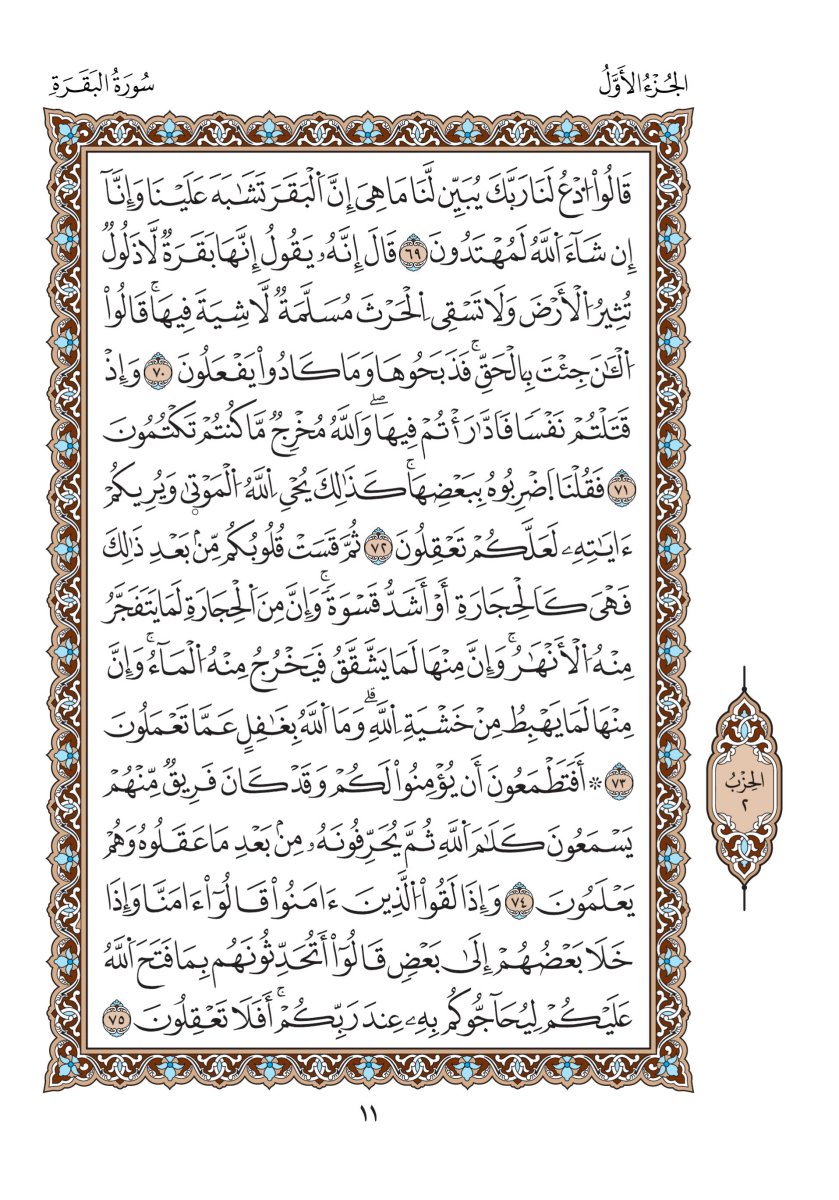 الجُزْءُ الأَوَّلُ
سُورَةُ البَقَرَةِ
قَالُواْ اُ۟دْعُ لَنَا رَبَّكَ يُبَيِّن لَّنَا مَا هِيَ إِنَّ اَ۬لْبَقَرَ تَشَٰبَهَ عَلَيْنَا وَإِنَّآ
إِن شَآءَ اَ۬للَّهُ لَمُهْتَدُونَ ٦٩ قَالَ إِنَّهُۥ يَقُولُ إِنَّهَا بَقَرَةٌ لَّا ذَلُولٌ
تُثِيرُ اُ۬لْأَرْضَ وَلَا تَسْقِي اِ۬لْحَرْثَ مُسَلَّمَةٌ لَّا شِيَةَ فِيهَاۚ قَالُواْ
اُ۬لْـَٰٔنَ جِئْتَ بِالْحَقِّۚ فَذَبَحُوهَا وَمَا كَادُواْ يَفْعَلُونَ ٧٠ وَإِذْ
قَتَلْتُمْ نَفْسًا فَادَّٰرَْٰٔتُمْ فِيهَاۖ وَاللَّهُ مُخْرِجٌ مَّا كُنتُمْ تَكْتُمُونَ
٧١ فَقُلْنَا اَ۪ضْرِبُوهُ بِبَعْضِهَاۚ كَذَٰلِكَ يُحْيِ اِ۬للَّهُ اُ۬لْمَوْتۭىٰ وَيُرِيكُمْ
ءَايَٰتِهِۦ لَعَلَّكُمْ تَعْقِلُونَ ٧٢ ثُمَّ قَسَتْ قُلُوبُكُم مِّنۢ بَعْدِ ذَٰلِكَ
فَهْيَ كَالْحِجَارَةِ أَوْ أَشَدُّ قَسْوَةًۚ وَإِنَّ مِنَ اَ۬لْحِجَارَةِ لَمَا يَتَفَجَّرُ
مِنْهُ اُ۬لْأَنْهَٰرُۚ وَإِنَّ مِنْهَا لَمَا يَشَّقَّقُ فَيَخْرُجُ مِنْهُ اُ۬لْمَآءُۚ وَإِنَّ
مِنْهَا لَمَا يَهْبِطُ مِنْ خَشْيَةِ اِ۬للَّهِۗ وَمَا اَ۬للَّهُ بِغَٰفِلٍ عَمَّا تَعْمَلُونَ
٧٣ ۞ أَفَتَطْمَعُونَ أَن يُؤْمِنُواْ لَكُمْ وَقَدْ كَانَ فَرِيقٌ مِّنْهُمْ
يَسْمَعُونَ كَلَٰمَ اَ۬للَّهِ ثُمَّ يُحَرِّفُونَهُۥ مِنۢ بَعْدِ مَا عَقَلُوهُ وَهُمْ
يَعْلَمُونَ ٧٤ وَإِذَا لَقُواْ اُ۬لَّذِينَ ءَامَنُواْ قَالُوٓاْ ءَامَنَّا وَإِذَا
خَلَا بَعْضُهُمْ إِلَىٰ بَعْضٍ قَالُوٓاْ أَتُحَدِّثُونَهُم بِمَا فَتَحَ اَ۬للَّهُ
عَلَيْكُمْ لِيُحَآجُّوكُم بِهِۦ عِندَ رَبِّكُمْۚ أَفَلَا تَعْقِلُونَ ٧٥
الحِزْبُ
٢
١١